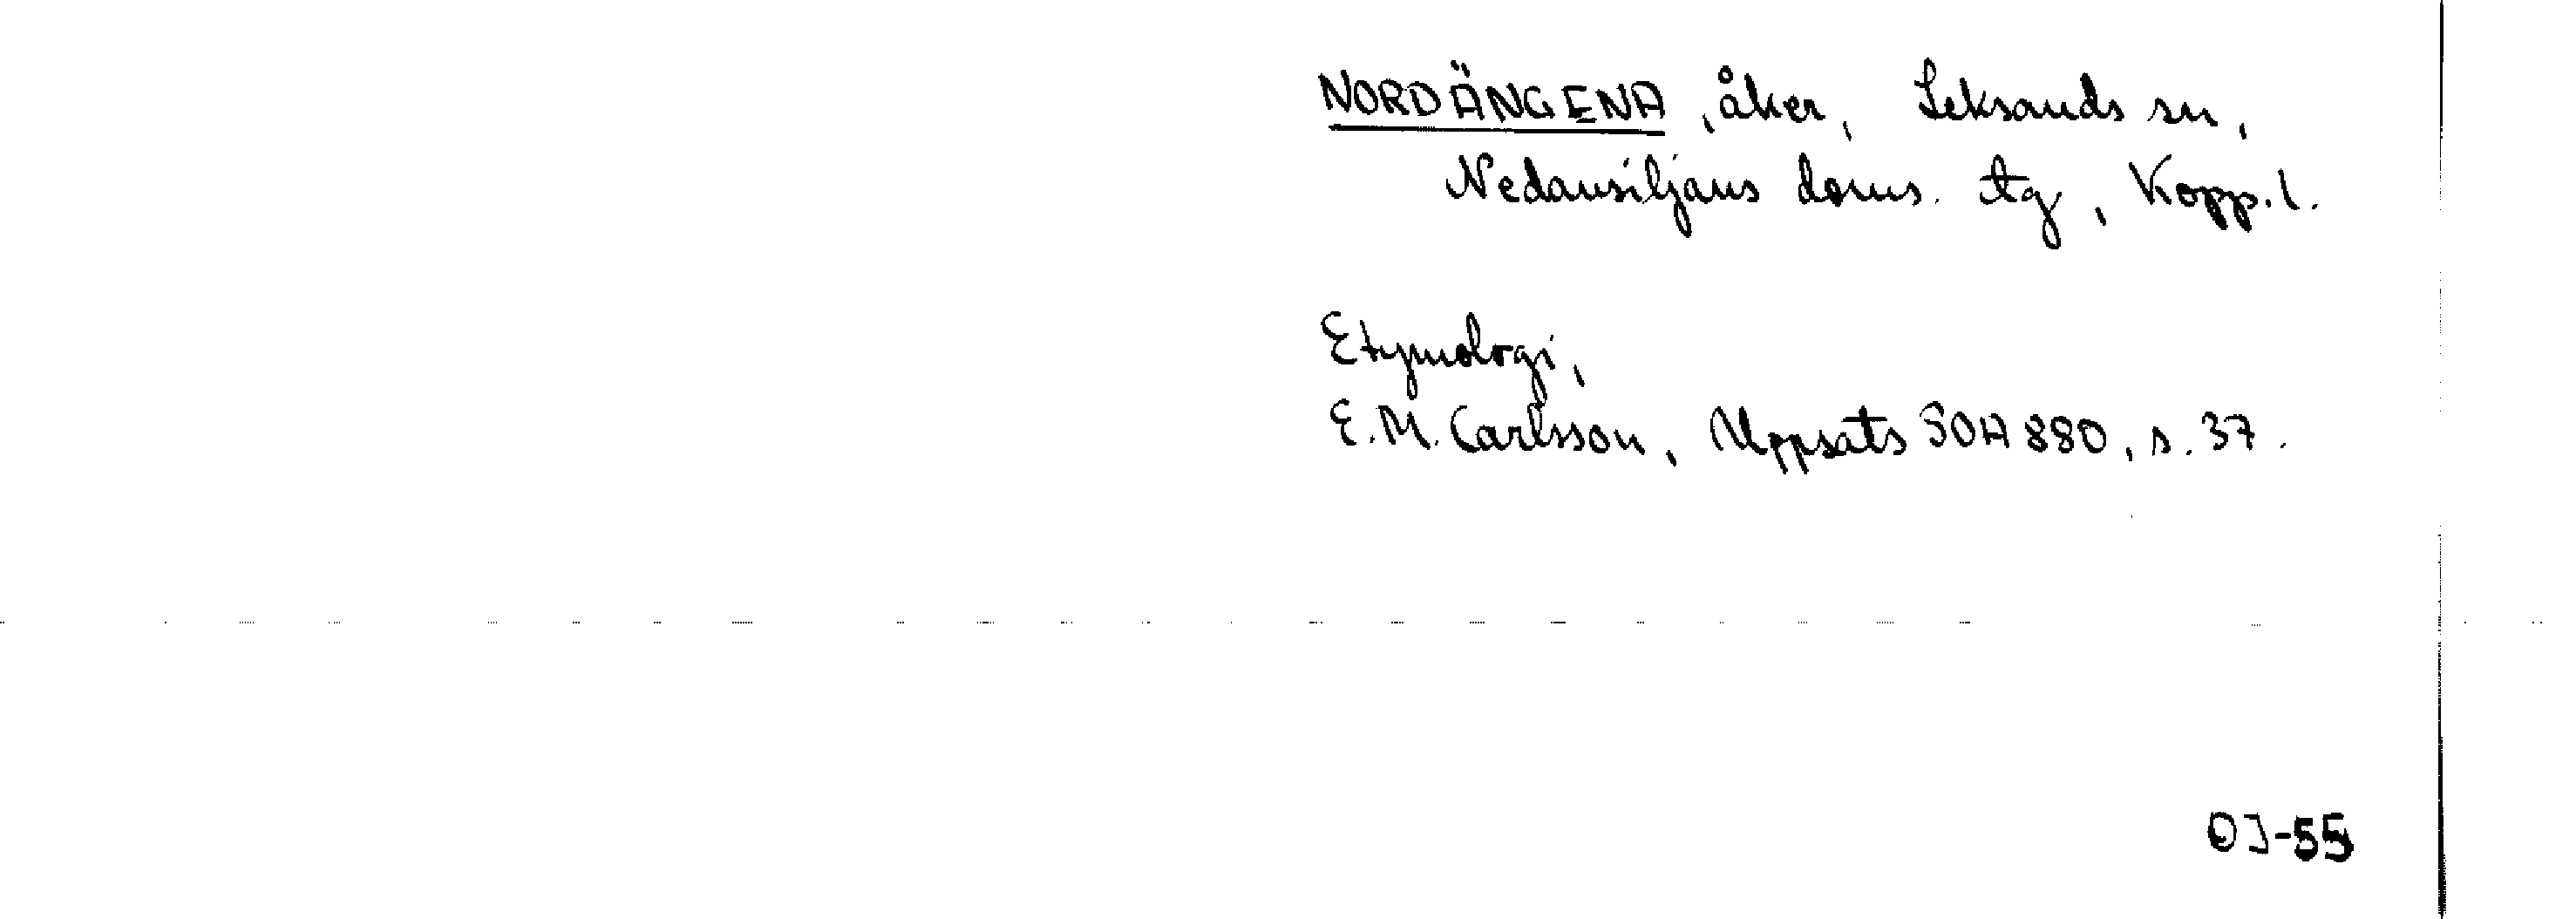 NORDÄNGENA, åker, Leksands sn,
Nedansiljans doms. tg, Kopp. l.
Etymologi,
E.M. Carlsson, Uppsats SOA 880, s. 37.
OJ-55